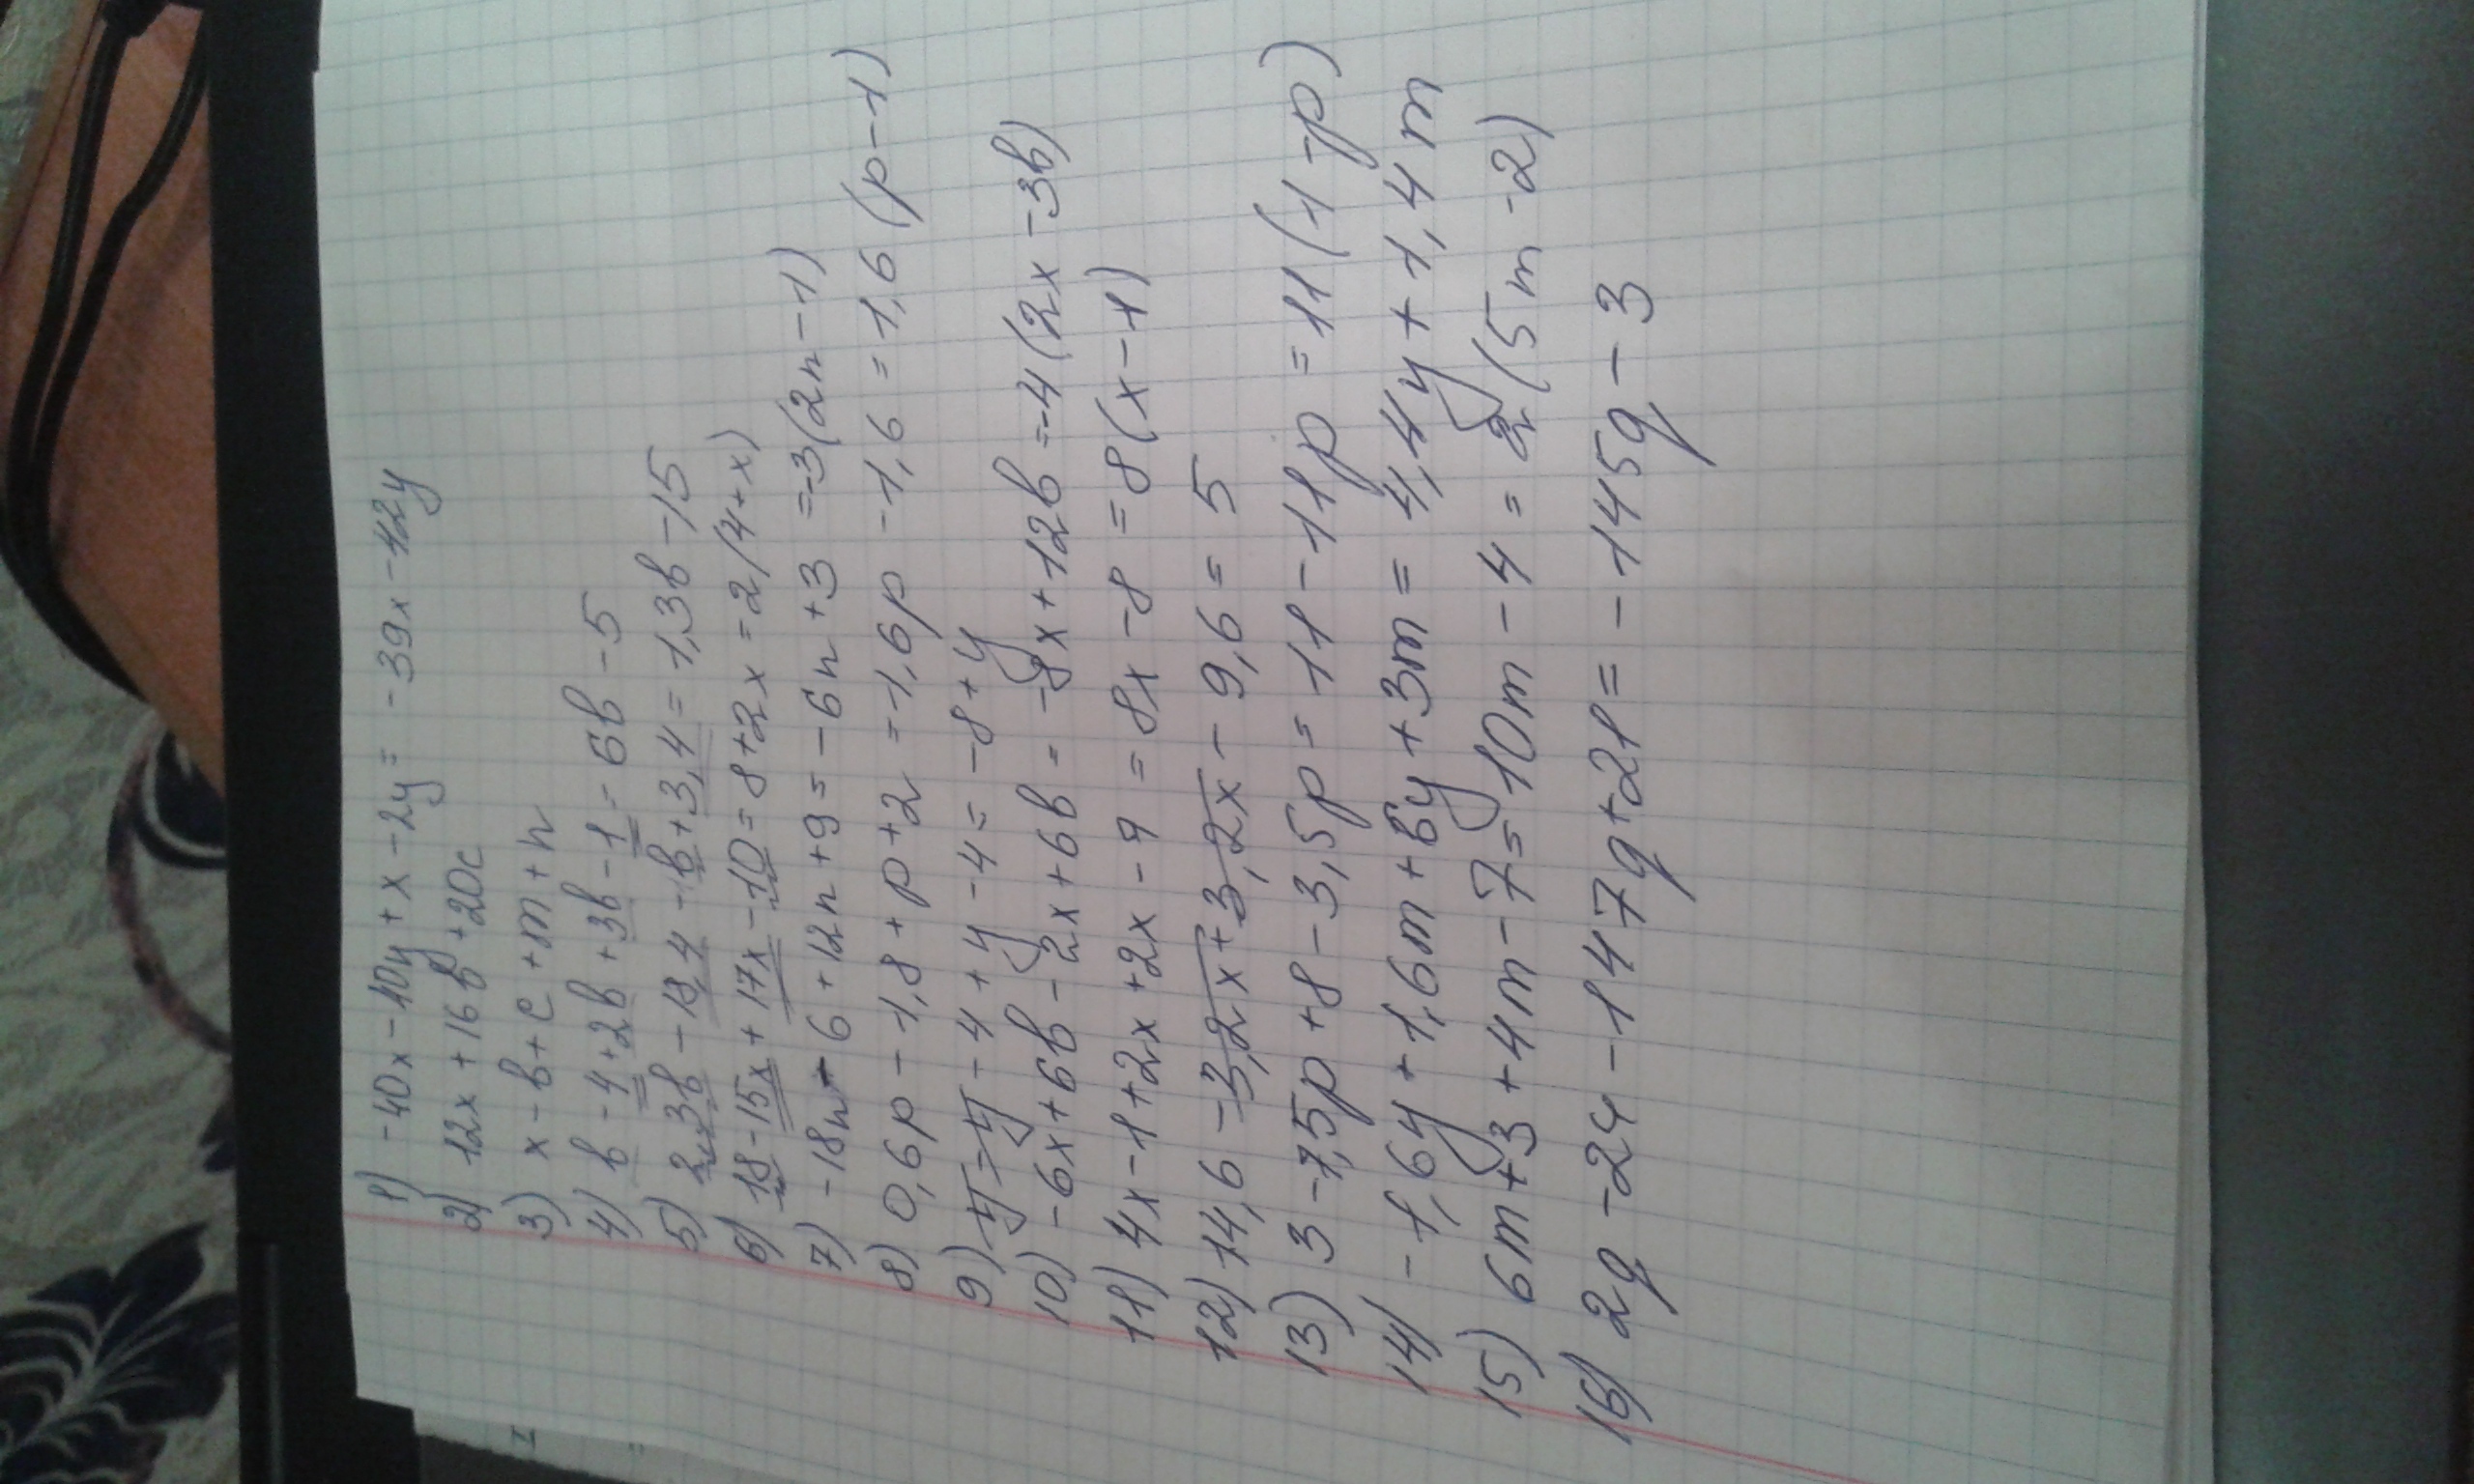 1) -40x-10y+x-2y= -39x-12y
2) 12x+16в+20c
3) x-в+c+m+n
4) в-4+2в+3в-1=6в-5
5) 2,3в-18,4-в+3,4=1,3в-15
6) 18-15x+17x-10=8+2x=2(4+x)
7) -18n-6+12n+9=-6n+3=-3(2n-1)
8) 0,6p-1,8+p+2=1,6p-1,6=1,6(p-1)
9) 4-4-4+y-4=-8+y
10) -6x+6в-2x+6в=-8x+12в=-4(2x-3в)
11) 4x-1+2x+2x-9=8x-8=8(x-1)
12) 14,6-3,2x+3,2x-9,6=5
13) 3-7,5p+8-3,5p=11-11p=11(1-p)
14) -1,6y+1,6m+6y+3m=4,4y+1,4m
15) 6m+3+4m-7=10m-4=2(5m-2)
16) 2q-24-147q+21=-145q-3